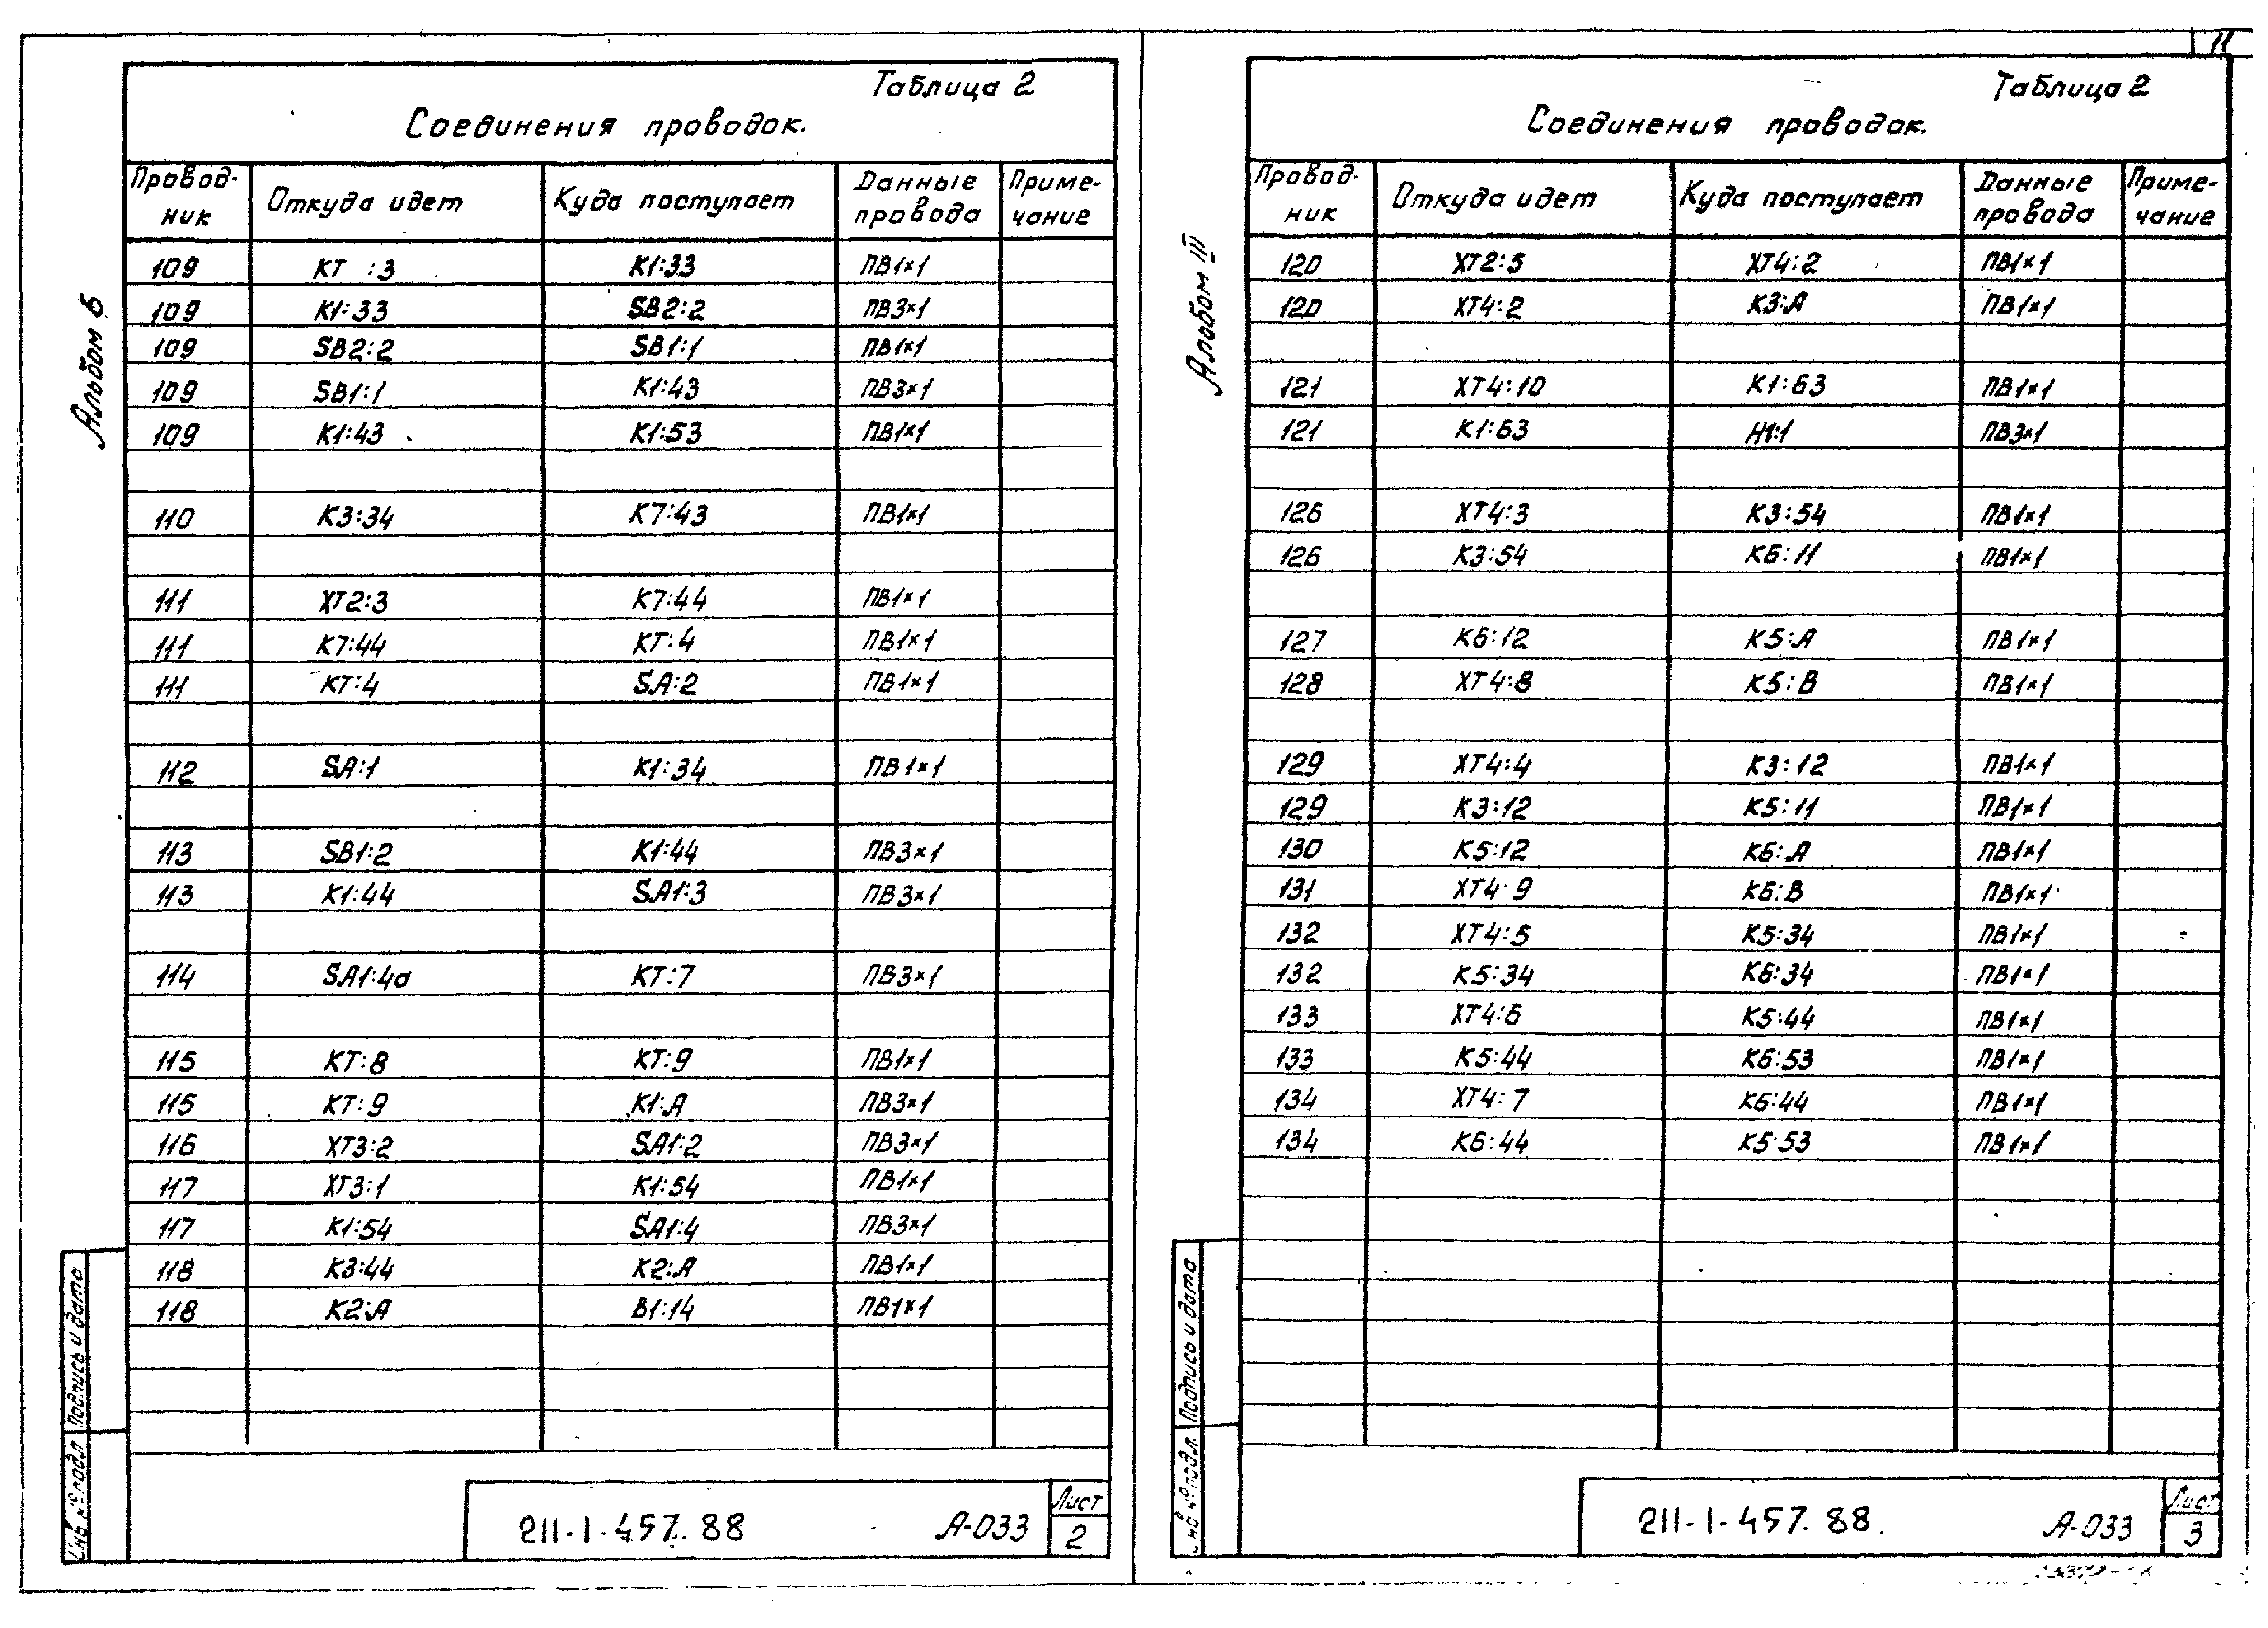 11
Таблица 2
Соединения проводок.
Провод-ник Откуда идет Куда поступает Данные провода Приме-чание
109 КТ :3 К1:33 ПВ1×1
109 К1:33 SB2:2 ПВ3×1
109 SB2:2 SB1:1 ПВ1×1
109 SB1:1 К1:43 ПВ3×1
109 К1:43 К1:53 ПВ1×1
110 К3:34 К7:43 ПВ1×1
111 ХТ2:3 К7:44 ПВ1×1
111 К7:44 КТ:4 ПВ1×1
111 КТ:4 SA:2 ПВ1×1
112 SA:1 К1:34 ПВ1×1
113 SB1:2 К1:44 ПВ3×1
113 К1:44 SA1:3 ПВ3×1
114 SA1:4а КТ:7 ПВ3×1
115 КТ:8 КТ:9 ПВ1×1
115 КТ:9 К1:А ПВ3×1
116 ХТ3:2 SA1:2 ПВ3×1
117 ХТ3:1 К1:54 ПВ1×1
117 К1:54 SA1:4 ПВ3×1
118 К3:44 К2:А ПВ1×1
118 К2:А В1:14 ПВ1×1
Альбом
Подпись и дата
Инв № подл
211-1-457.88 А-033
Лист
2
Таблица 2
Соединения проводок.
Провод-ник Откуда идет Куда поступает Данные провода Приме-чание
120 ХТ2:5 ХТ4:2 ПВ1×1
120 ХТ4:2 К3:А ПВ1×1
121 ХТ4:10 К1:63 ПВ1×1
121 К1:63 Н1:1 ПВ3×1
126 ХТ4:3 К3:54 ПВ1×1
126 К3:54 К6:11 ПВ1×1
127 К6:12 К5:А ПВ1×1
128 ХТ4:8 К5:В ПВ1×1
129 ХТ4:4 К3:12 ПВ1×1
129 К3:12 К5:11 ПВ1×1
130 К5:12 К6:А ПВ1×1
131 ХТ4:9 К6:В ПВ1×1
132 ХТ4:5 К5:34 ПВ1×1
132 К5:34 К6:34 ПВ1×1
133 ХТ4:6 К5:44 ПВ1×1
133 К5:44 К6:53 ПВ1×1
134 ХТ4:7 К6:44 ПВ1×1
134 К6:44 К5:53 ПВ1×1
Альбом III
Подпись и дата
Инв № подл.
211-1-457.88. А-033
Лист
3